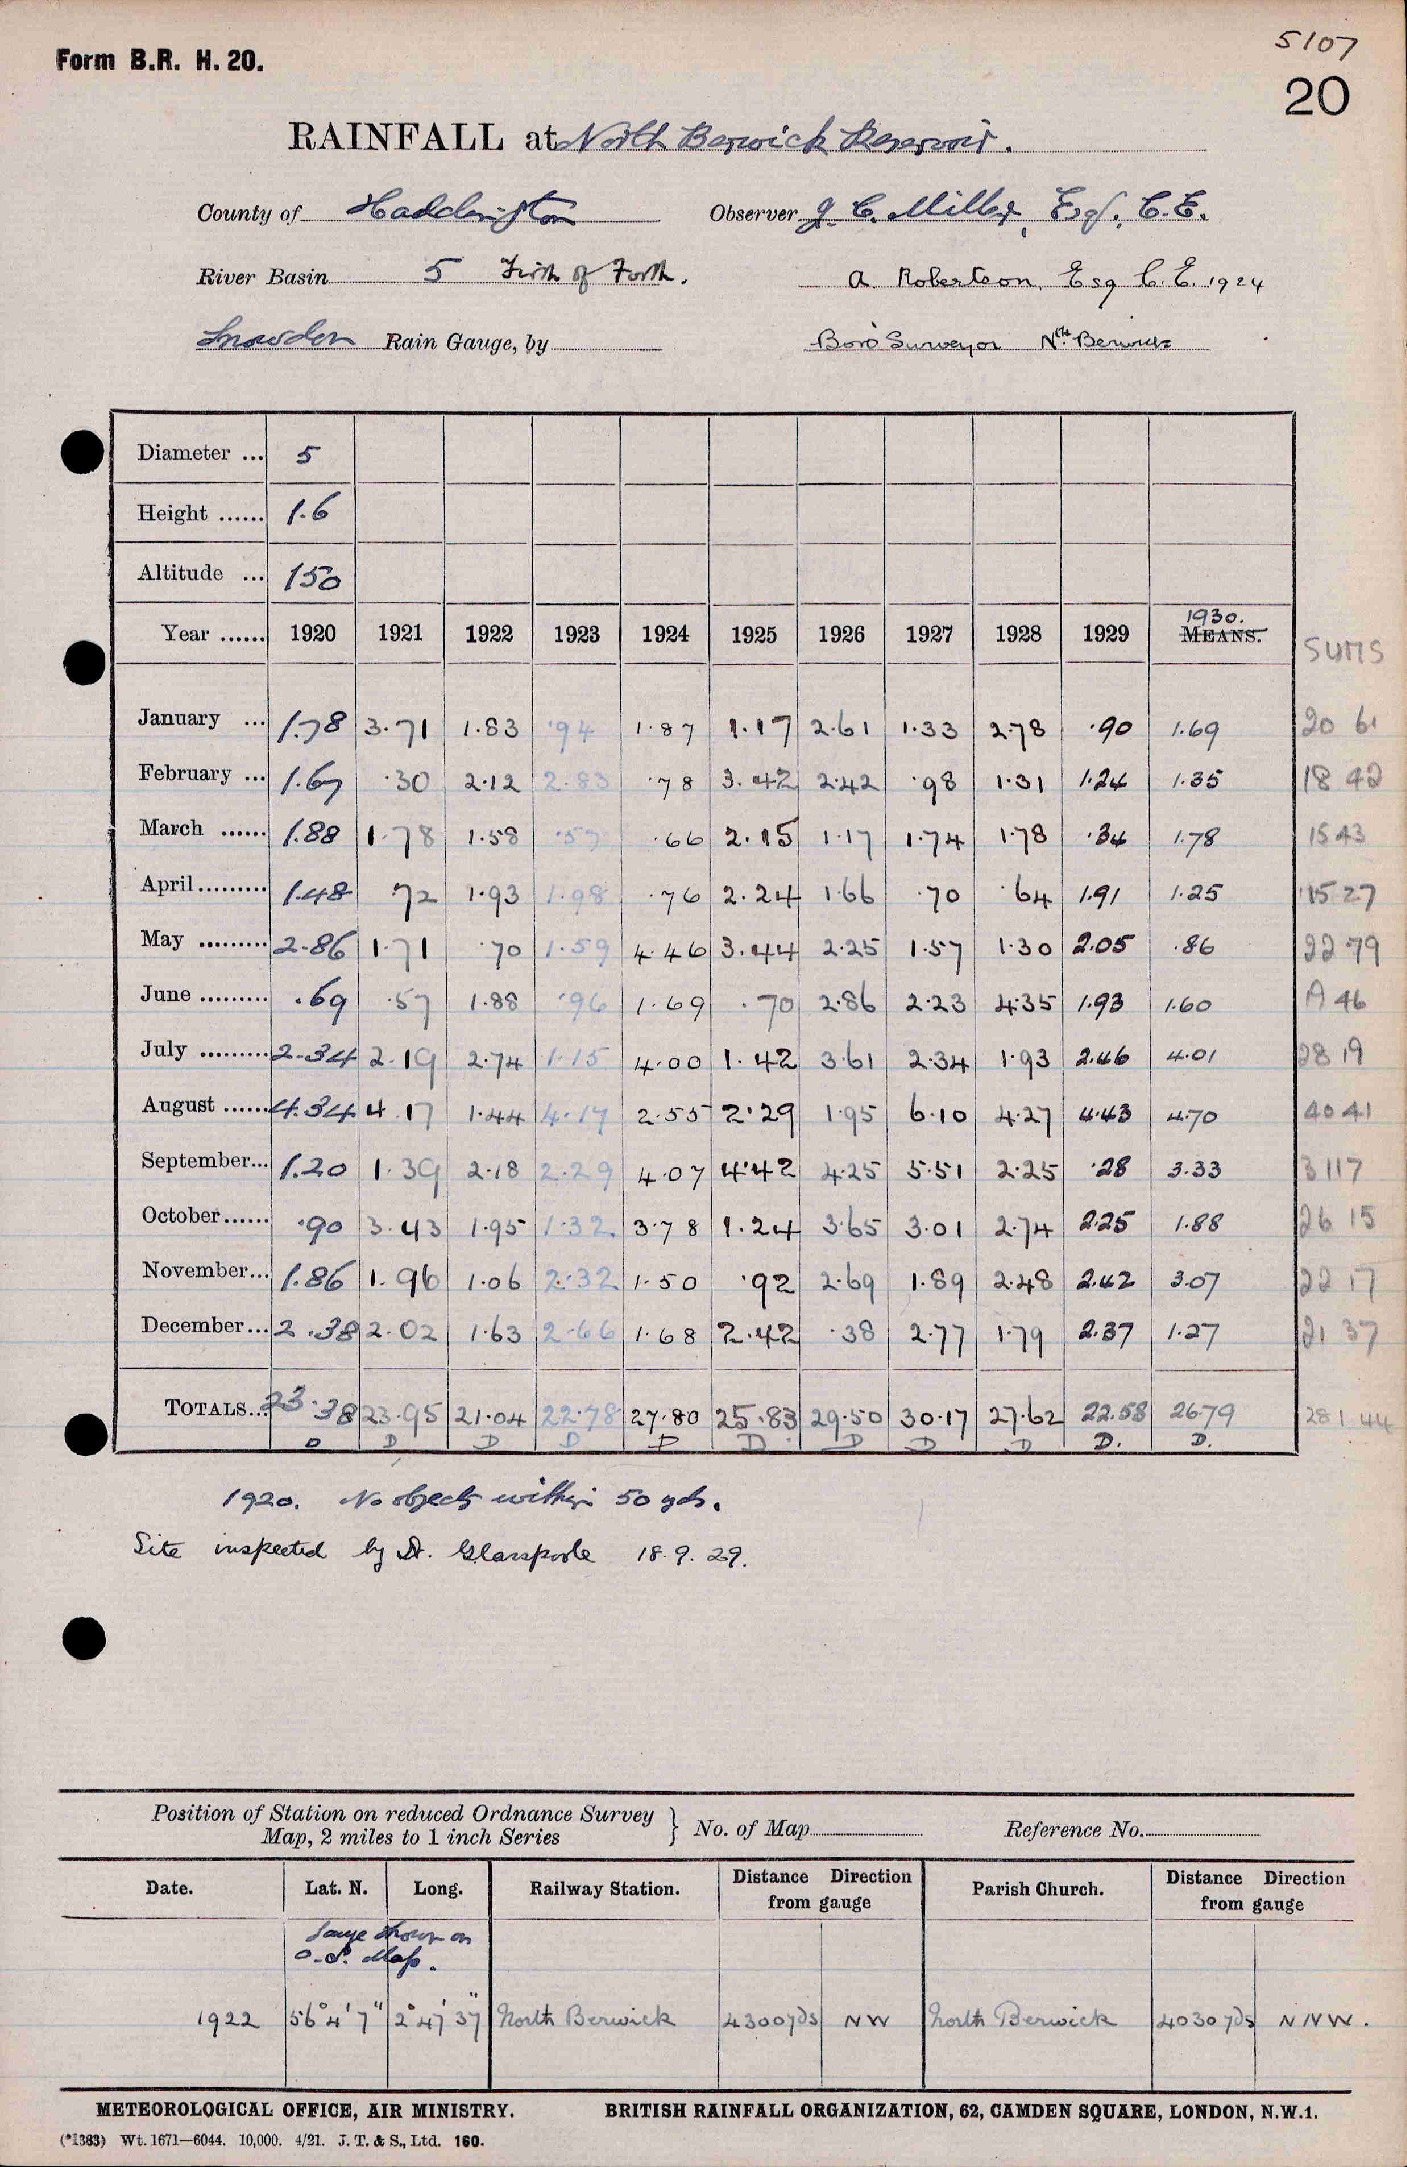 5107
Form B.R. H. 20.
20
RAINFALL at North Berwick Reservoir.
County of Haddington Observer J. C. Miller, Esq., C.E.
River Basin 5 Firth of Forth. A Robertson, Esq C.E. 1924
Snowdon Rain Gauge, by Boro Surveyor Nth Berwick
Diameter ... 5
Height ...... 1.6
Altitude ... 150
1930.
Year ...... 1920 1921 1922 1923 1924 1925 1926 1927 1928 1929 MEANS. SUMS
January ... 1.78 3.71 1.83 .94 1.87 1.17 2.61 1.33 2.78 .90 1.69 20 61
February ... 1.67 .30 2.12 2.83 .78 3.42 2.42 .98 1.31 1.24 1.35 18 42
March ...... 1.88 1.78 1.58 .57 .66 2.15 1.17 1.74 1.78 .34 1.78 15 43
April ......... 1.48 .72 1.93 1.98 .76 2.24 1.66 .70 .64 1.91 1.25 15 27
May ......... 2.86 1.71 .70 1.59 4.46 3.44 2.25 1.57 1.30 2.05 .86 22 79
June ......... .69 .57 1.88 .96 1.69 .70 2.86 2.23 4.35 1.93 1.60 46
July ......... 2.34 2.19 2.74 1.15 4.00 1.42 3.61 2.34 1.93 2.46 4.01 28 19
August ...... 4.34 4.17 1.44 4.17 2.55 2.29 1.95 6.10 4.27 4.43 4.70 40 41
September... 1.20 1.39 2.18 2.29 4.07 4.42 4.25 5.51 2.25 .28 3.33 31 17
October...... .90 3.43 1.95 1.32 3.78 1.24 3.65 3.01 2.74 2.25 1.88 26 15
November... 1.86 1.96 1.06 2.32 1.50 .92 2.69 1.89 2.48 2.42 3.07 22 17
December... 2.38 2.02 1.63 2.66 1.68 2.42 .38 2.77 1.79 2.37 1.27 21 37
TOTALS... 23.38 23.95 21.04 22.78 27.80 25.83 29.50 30.17 27.62 22.58 26.79 281.44
D D D D D D D D D D. D.
1920. No objects within 50 yds.
Site inspected by Dr. Glasspoole 18.9.29.
Position of Station on reduced Ordnance Survey
Map, 2 miles to 1 inch Series } No. of Map Reference No.
Date. Lat. N. Long. Railway Station. Distance Direction from gauge Parish Church. Distance Direction from gauge
Gauge shown on
O.S. Map.
1922 56° 4' 7" 2° 47' 37" North Berwick 4300 yds NW North Berwick 4030 yds NNW.
METEOROLOGICAL OFFICE, AIR MINISTRY. BRITISH RAINFALL ORGANIZATION, 62, CAMDEN SQUARE, LONDON, N.W.1.
(*1383) Wt. 1671—6044. 10,000. 4/21. J. T. & S., Ltd. 160.